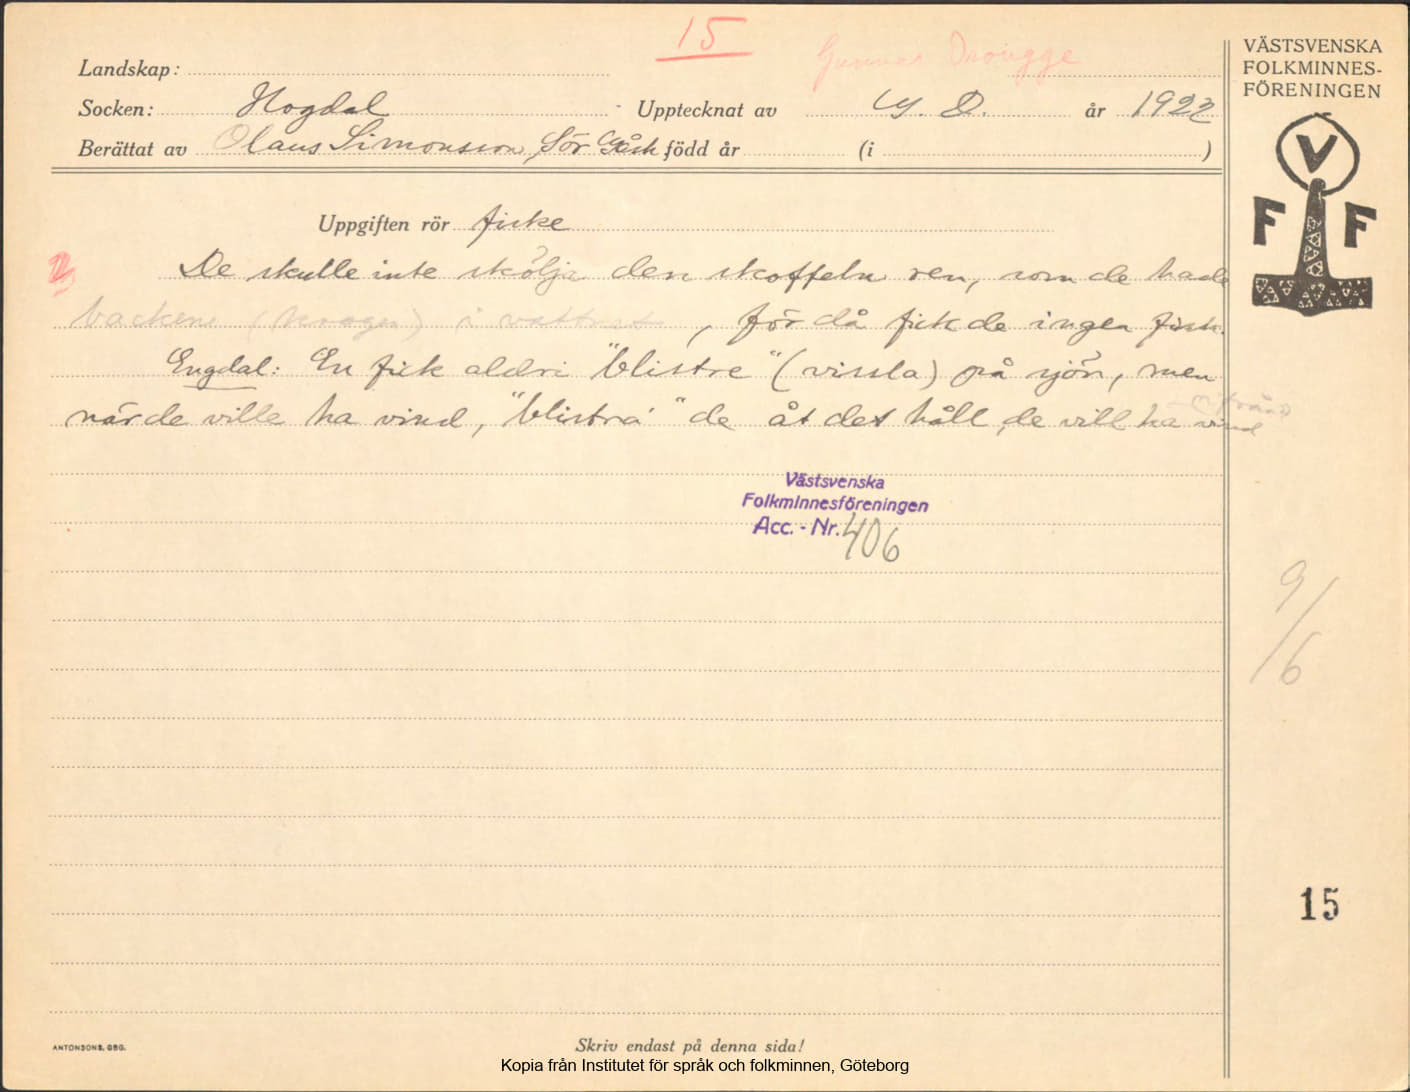 15
Gunnar Drougge
VÄSTSVENSKA
FOLKMINNES-
FÖRENINGEN
Landskap:
Socken: Hogdal Upptecknat av G. D. år 1922
Berättat av Olaus Simonsson, Sör född år (i )
V
F F
Uppgiften rör fiske
2
De skulle inte skölja den skoffeln ren, som de hade
backene (kragen) i vattnet, för då fick de ingen fisk.
Engdal: En fick aldri "blistre" (vissla) på sjön, men
när de ville ha vind, "blistra" de åt det håll de vill ha vind
ifrån
Västsvenska
Folkminnesföreningen
Acc. - Nr. 406
9/6
15
ANTONSONS, GBG.
Skriv endast på denna sida!
Kopia från Institutet för språk och folkminnen, Göteborg